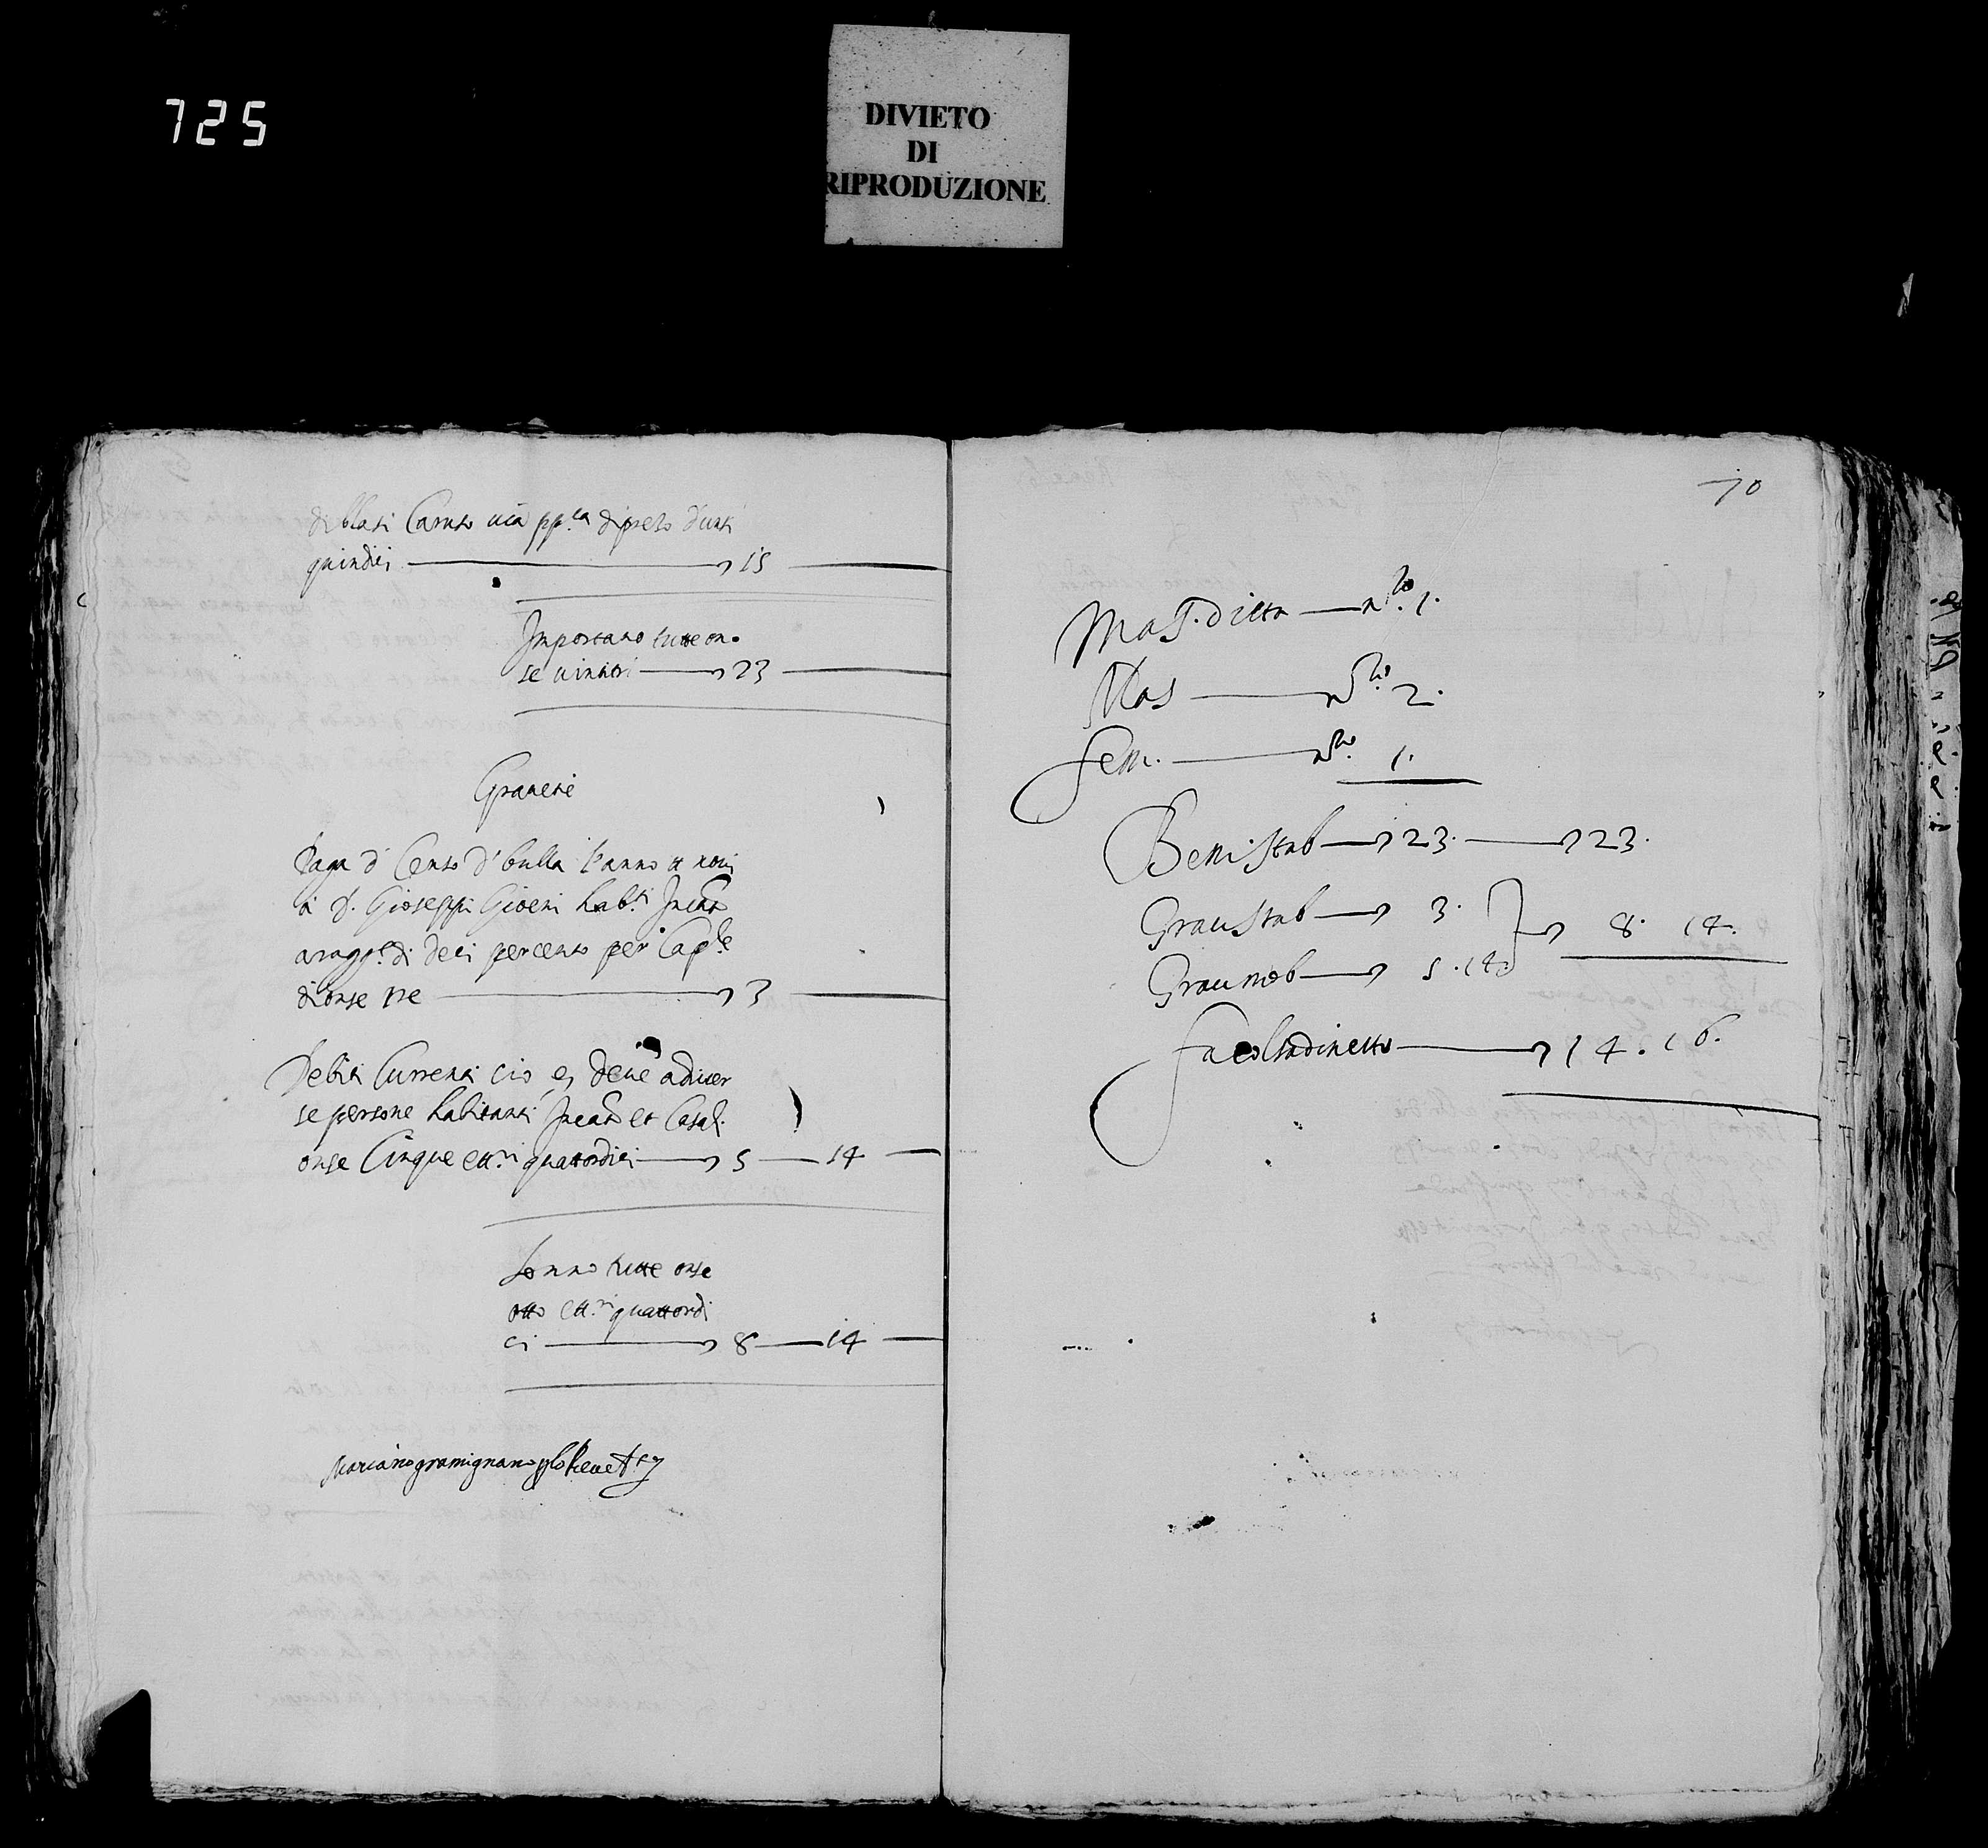 725
DIVIETO
DI
RIPRODUZIONE
di blasi Caruso uia pp.ca di prezo d'unti
quindici 15
Importano tutte on
se uintitri 23
Grauezze
Paga d' Censo d' bulla l'anno
à D. Gioseppi Gioeni hab.ti
a ragg.e di deci percento per Cap.le
d'onze tre 3
Debiti Currenti cio e, deue a diuer
se persone habitanti et Casali
onze Cinque et t.rì quattordici 5 14
Sonno tutte onze
otto et t.rì quattordi
ci 8 14
Mariano gramignano
70
Mas. ditta n.ro 1.
Mas n.ro 2.
fem. n.ro 1.
Beni stab 23. 23.
Grau stab 3.
8. 14.
Grau mob 5. 14.
facolta di netto 14. 16.